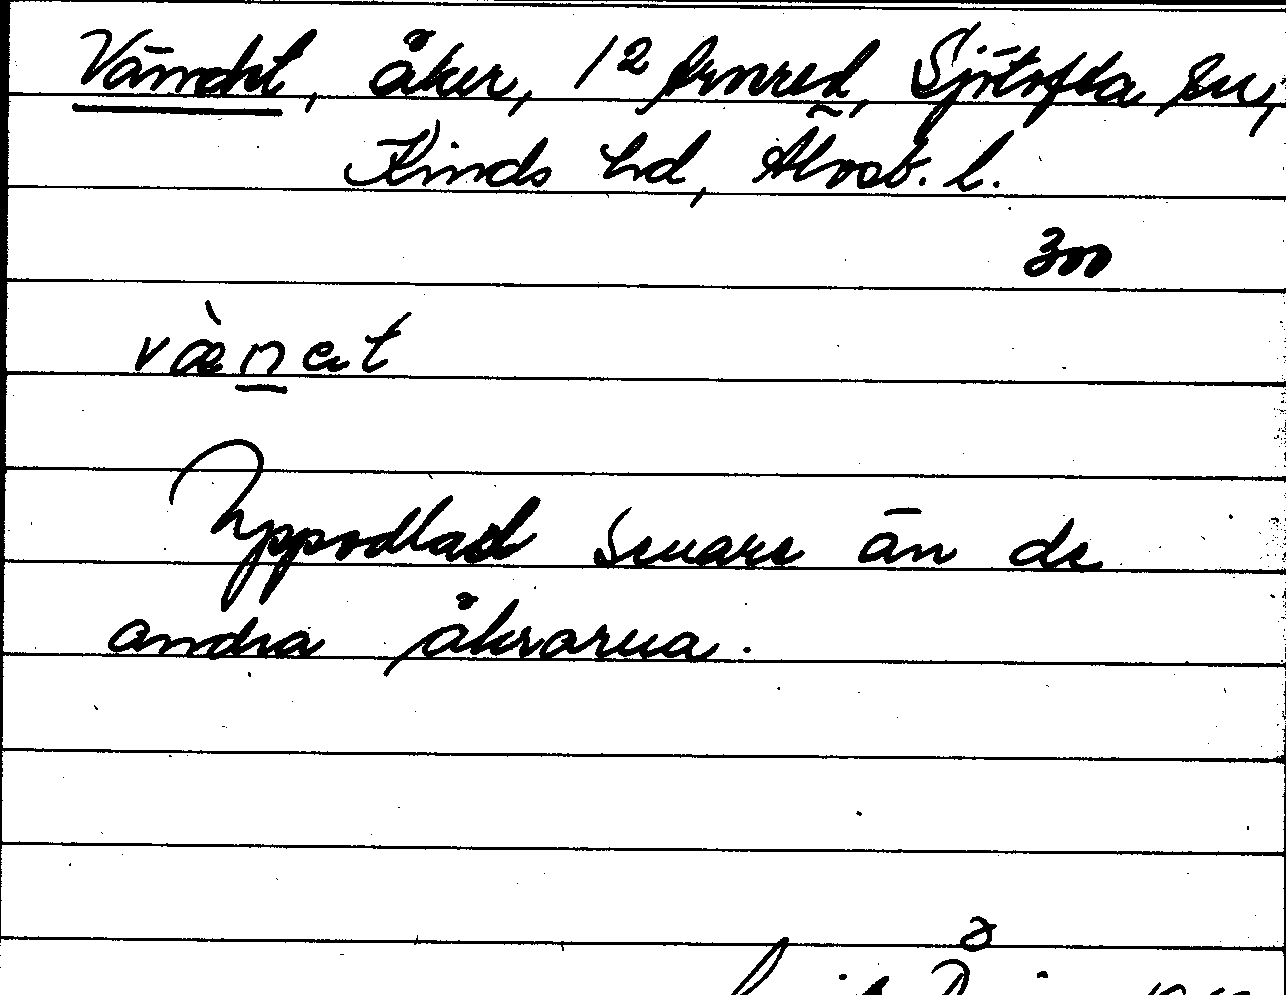 Vändet, åker, 1² Arnred, Sjötofta sn,
Kinds hd, Älvsb. l.
300
vænet
Uppodlad senare än de
andra åkrarna.